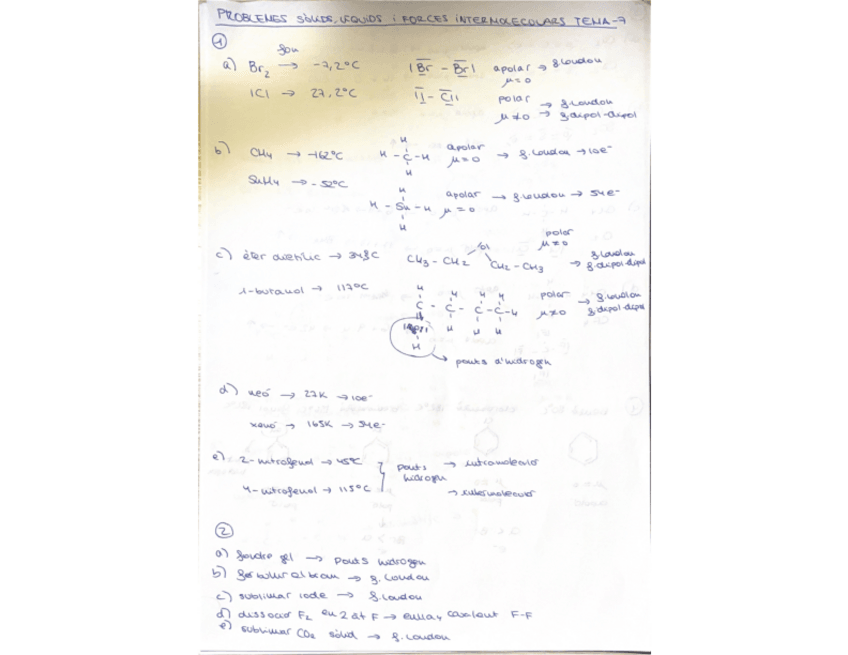 PROBLEMES SÒLIDS, LÍQUIDS i FORCES INTERMOLECULARS TEMA-7
1
fon
a) Br2 → -7,2ºC |Br - Br| apolar → f. london
μ=0
ICl → 27,2ºC I - Cl polar → f. london
μ≠0 → f. dipol-dipol
b) CH4 → -162ºC H - C - H apolar μ=0 → f. london → 10e-
H
H
SnH4 → -52ºC H - Sn - H apolar μ=0 → f. london → 54e-
H
H
c) èter dietílic → 34,5C CH3 - CH2 O CH2 - CH3 polar μ≠0 → f. london
f. dipol-dipol
1-butanol → 117ºC C - C - C - C - H polar μ≠0 → f. london
f. dipol-dipol
H H H H
H
→ ponts d'hidrogen
d) neó → 27K → 10e-
xenó → 165K → 54e-
e) 2-nitrofenol → 45ºC ponts hidrogen → intramolecular
4-nitrofenol → 115ºC → intermolecular
2
a) fondre gel → ponts hidrogen
b) fer bullir el brom → f. london
c) sublimar iode → f. london
d) dissociar F2 en 2 àt F → enllaç covalent F-F
e) sublimar CO2 sòlid → f. london